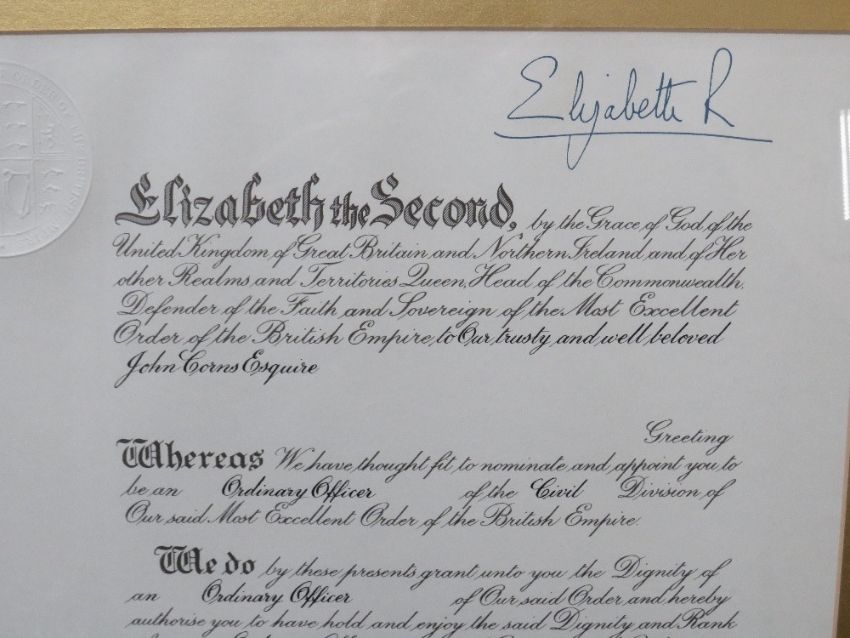 Elizabeth R
Elizabeth the Second, by the Grace of God of the
United Kingdom of Great Britain and Northern Ireland and of Her
other Realms and Territories Queen, Head of the Commonwealth,
Defender of the Faith and Sovereign of the Most Excellent
Order of the British Empire to Our trusty and well beloved
John Corns Esquire
Greeting
Whereas We have thought fit to nominate and appoint you to
be an Ordinary Officer of the Civil Division of
Our said Most Excellent Order of the British Empire.
We do by these presents grant unto you the Dignity of
an Ordinary Officer of Our said Order and hereby
authorise you to have hold and enjoy the said Dignity and Rank